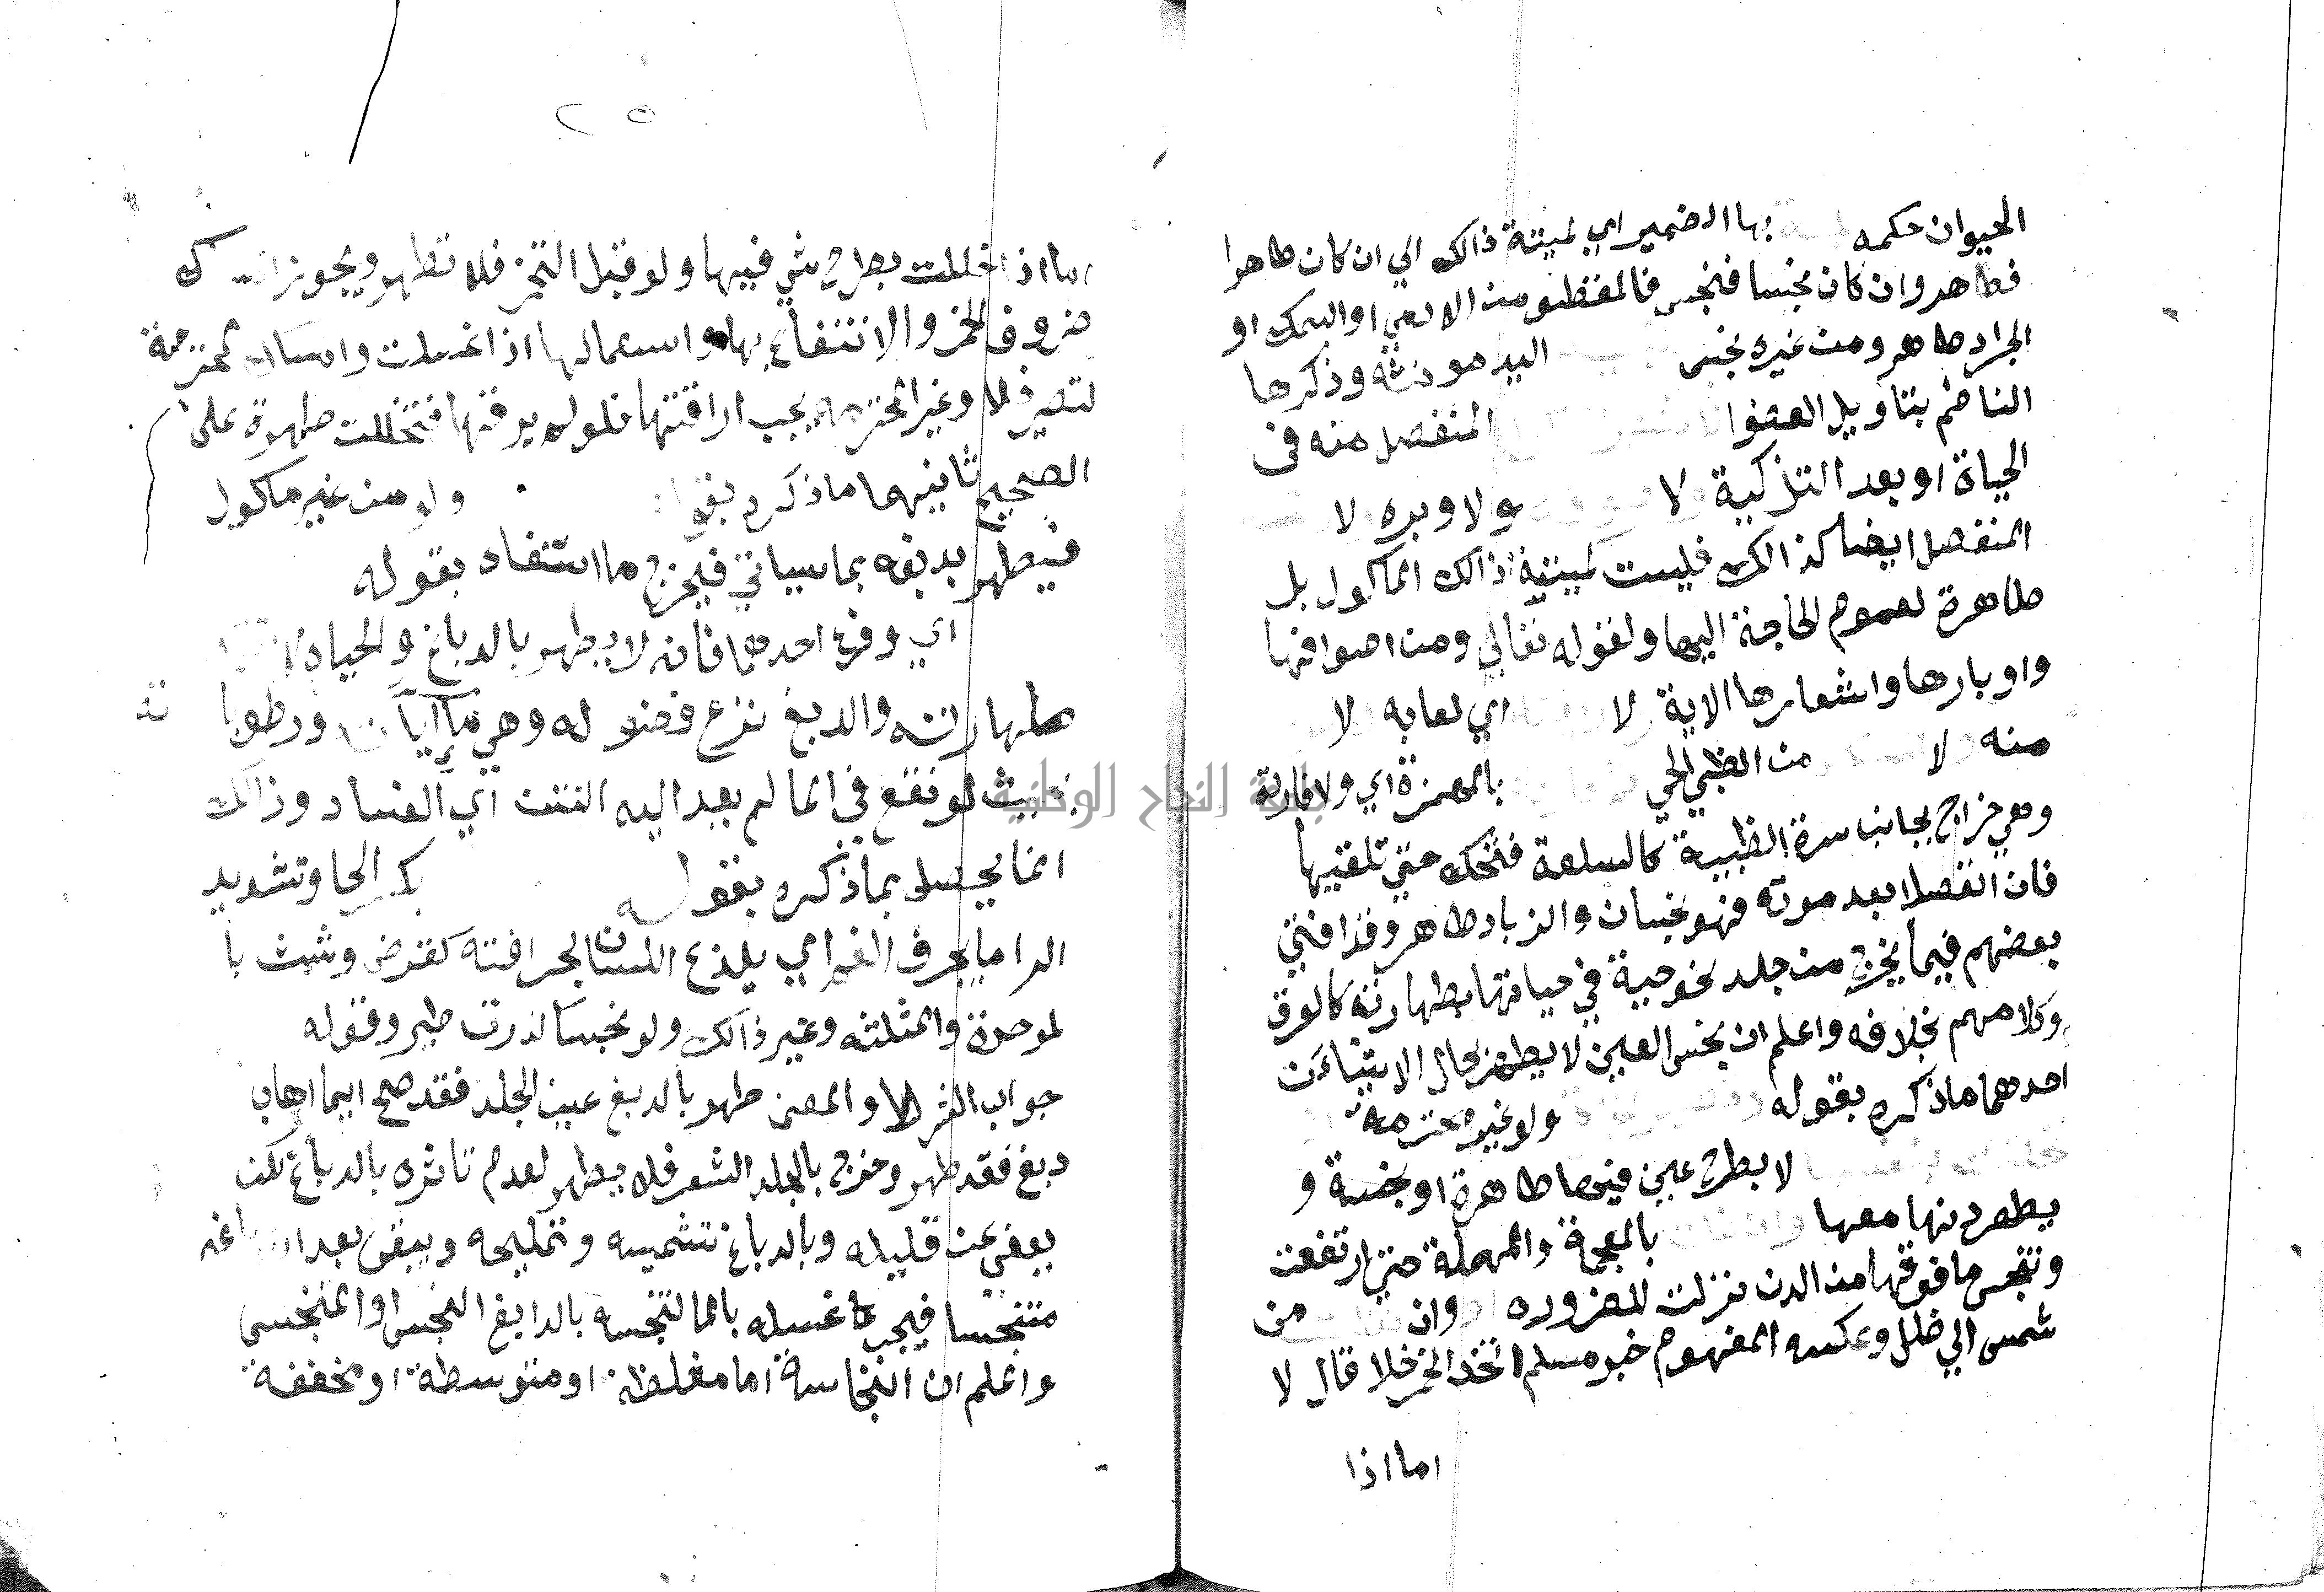 الحيوان حكمه بها الضمير اي لميتة ذالك الي ان كان طاهرا
فطاهر وان كان نجسا فنجس فالمنقطع من الادمي او السمك او
الجراد طاهر ومن غيره نجس اليد مونثه وذكرها
الناظم بتاويل العضو المنفصل منه في
الحياة او بعد التذكية لا ولا وبره لا
المنفصل ايضا كذالك فليست لميتة ذالك الماكول بل
طاهرة لعموم الحاجة اليها ولقوله تعالي ومن اصوافها
واوبارها واشعارها الاية لا اي لعابه لا
منه لا من الظبي الحي بالهمزة اي ولا فارته
وهي خراج بجانب سرة الظبية كالسلعة فتحك حتي تلقيها
فان انفصلا بعد موته فهو نجسان والزباد طاهر وقد افتي
بعضهم فيما يخرج من جلد نحو حية في حياتها بطهارته كالعرق
وكلامهم بخلافه واعلم ان نجس العين لا يطهر بحال الا شيئان
احدهما ماذكره بقوله ولو غير محترمة
لا بطرح عين فيها طاهرة او نجسة و
يطهر دنها معها بالمعجمة والمهملة حتي ارتفعت
وتنجس ما فوقها من الدن نزلت للضروره وان من
شمس الي ظل وعكسه المفهوم خبر مسلم اتخذ الخمر خلا قال لا
اما اذا
٢٥
اما اذا تخللت بطرح شي فيها ولو قبل التخمر فلا تطهر ويجوز
ظروف الخمر والانتفاع بها واستعمالها اذا غسلت وامساك المحترمة
لتصير خلا وغير المحترمه يجب اراقتها فلو لم يرقها فتخللت طهرة على
الصحيح ثانيهما ماذكره ولو من غير ماكول
فيطهر بدبغه بما سياتي فيخرج ما استفاد بقوله
اي وفرع احدهما فانه لا يطهر بالدباغ والحياة
طهارته والدبغ نزع فضوله وهي ورطوبا ته
بحيث لو نقع في الما لم يعد اليه النتن اي الفساد وذالك
انما يحصل بما ذكره بقوله بكسر الحا وتشديد
الرا ما يحرف الفم اي يلذع اللسان بحرافته كقرض وشث با
لموحدة والمثلثه وغير ذالك ولو نجسا كذرق طير وقوله
جواب الشرط والمعنى طهر بالدبغ عين الجلد فقد صح ايما اهاب
دبغ فقد طهر وخرج بالجلد الشعر فلا يطهر لعدم تاثره بالدباغ لكن
يعفي عن قليله وبالدباغ تشميسه وتمليحه ويبقى بعد
متنجسا فيجب غسله بالما لتنجسه بالدابغ النجس او المتنجس
واعلم ان النجاسة اما مغلظة او متوسطة او مخففة
جامعة النجاح الوطنية